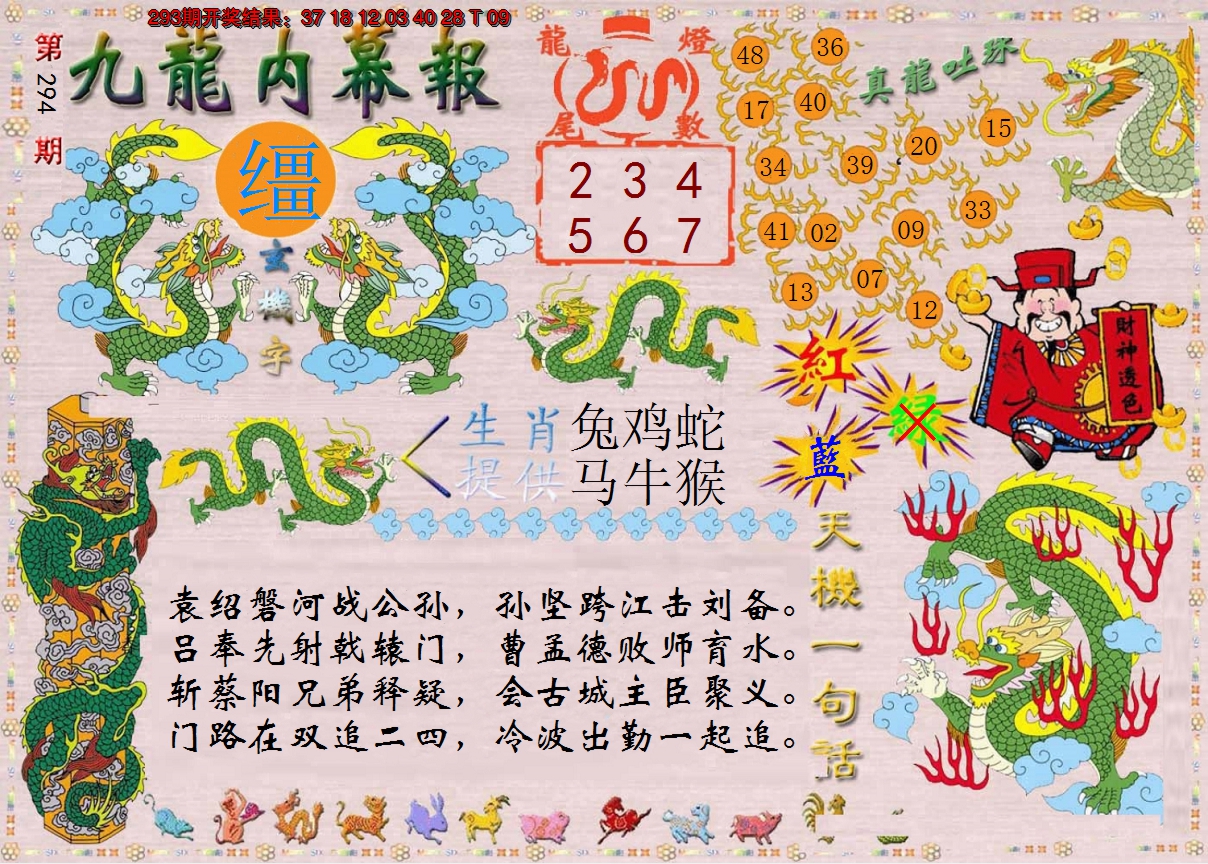 293期开奖结果：37 18 12 03 40 28 T 09
第294期
九龍内幕報
缰
玄機字
龍燈尾數
2 3 4
5 6 7
真龍吐珠
48
36
17
40
34
39
20
15
41
02
09
33
13
07
12
財神透色
紅
绿
藍
生肖提供
兔鸡蛇
马牛猴
天機一句話
袁绍磐河战公孙，孙坚跨江击刘备。
吕奉先射戟辕门，曹孟德败师育水。
斩蔡阳兄弟释疑，会古城主臣聚义。
门路在双追二四，冷波出勤一起追。